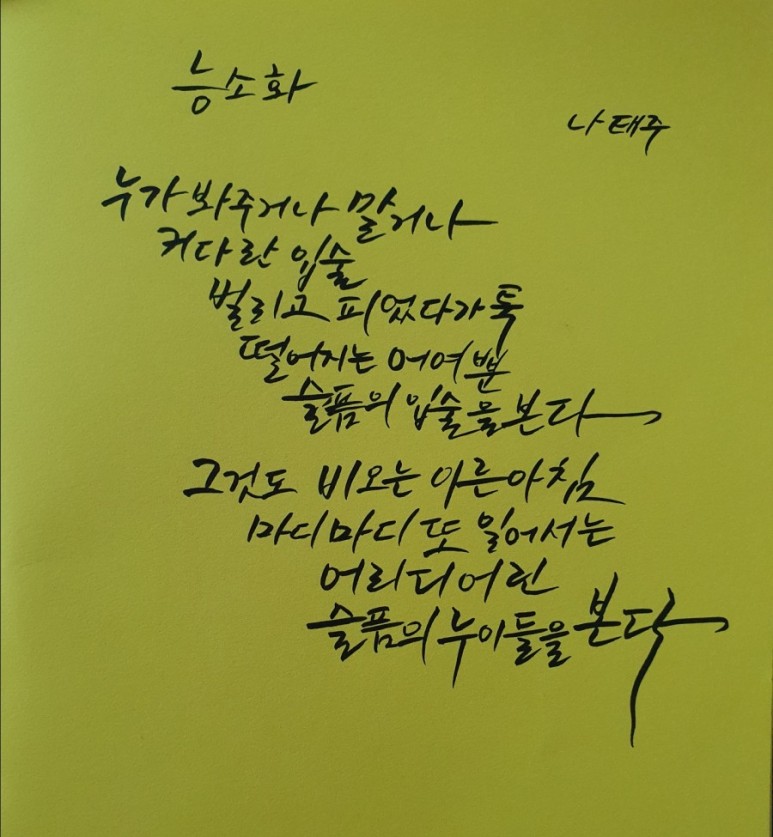 능소화
나태주
누가 봐주거나 말거나
커다란 입술
벌리고 피었다가 툭
떨어지는 어여쁜
슬픔의 입술을 본다
그것도 비오는 이른아침
마디마디 또 일어서는
어리디어린
슬픔의 누이들을 본다